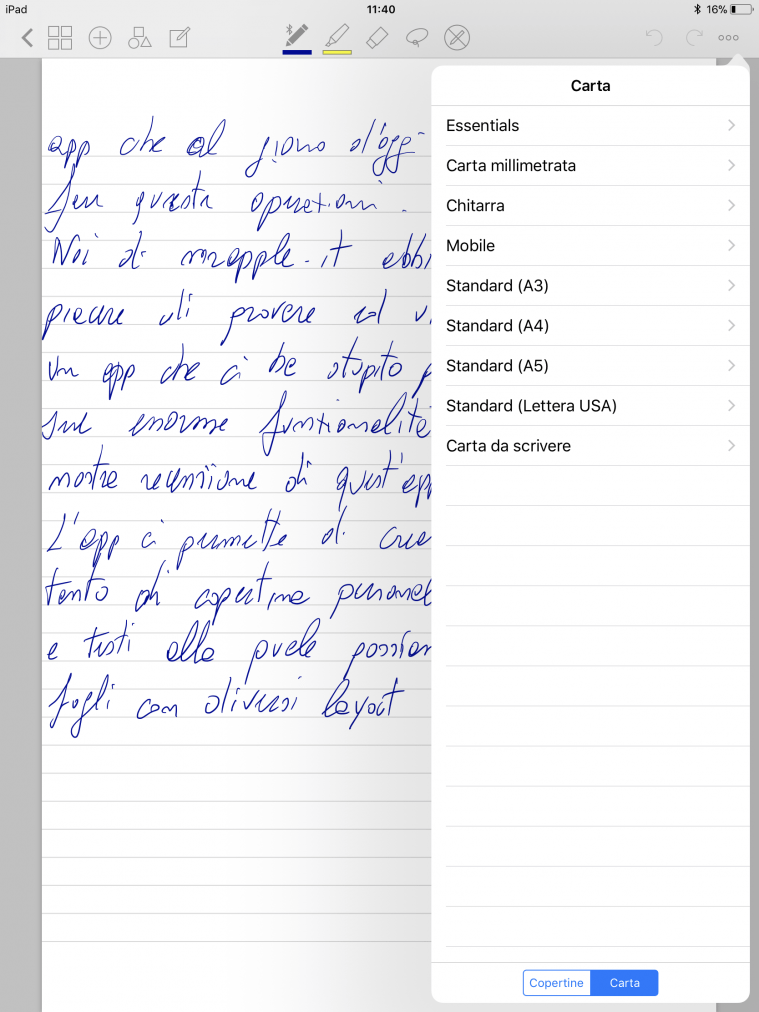 iPad
11:40
16%
app che al giorno d'oggi
fare questa operazioni.
Noi di mrapple.it abbi
piacere di provare ed
un app che ci ha stupito p
sue enorme funzionalità
nostra recensione di quest'app
L'app ci permette di crea
tanto di copertina personal
e testi alla quale possiam
fogli con diversi layout
Carta
Essentials
Carta millimetrata
Chitarra
Mobile
Standard (A3)
Standard (A4)
Standard (A5)
Standard (Lettera USA)
Carta da scrivere
Copertine
Carta